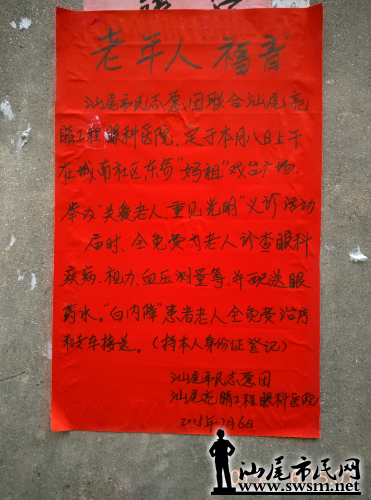 老年人 福音
汕尾市民志愿团联合汕尾亮
睛工程眼科医院、定于本月八日上午
在城南社区东笏"妈祖"戏台广场.
举办"关爱老人,重见光明"义诊活动
届时、全免费为老人诊查眼科
疾病、视力、血压测量等、并配送眼
药水。"白内障"患者老人全免费治疗
和专车接送。(持本人身份证登记)
汕尾市民志愿团
汕尾亮睛工程眼科医院
6日
汕尾市民网
www.swsm.net